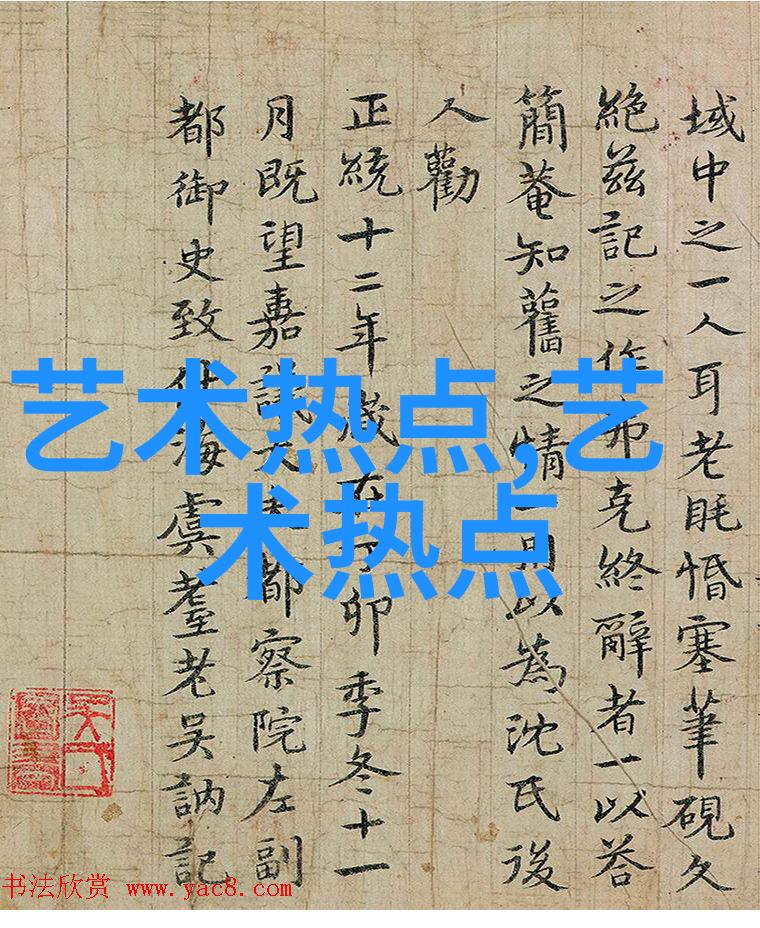 域中之一人耳老眊惛塞筆硯久
絶兹記之作弗克終辭者一以荅
簡菴知舊之情一用以為沈氏後
人勸
正統十二年歲在丁卯季冬十一
月既望嘉議大夫都察院左副
都御史致仕海虞耋老吴訥記
艺术热点,艺
术热点
书法欣赏 www.yac8.com